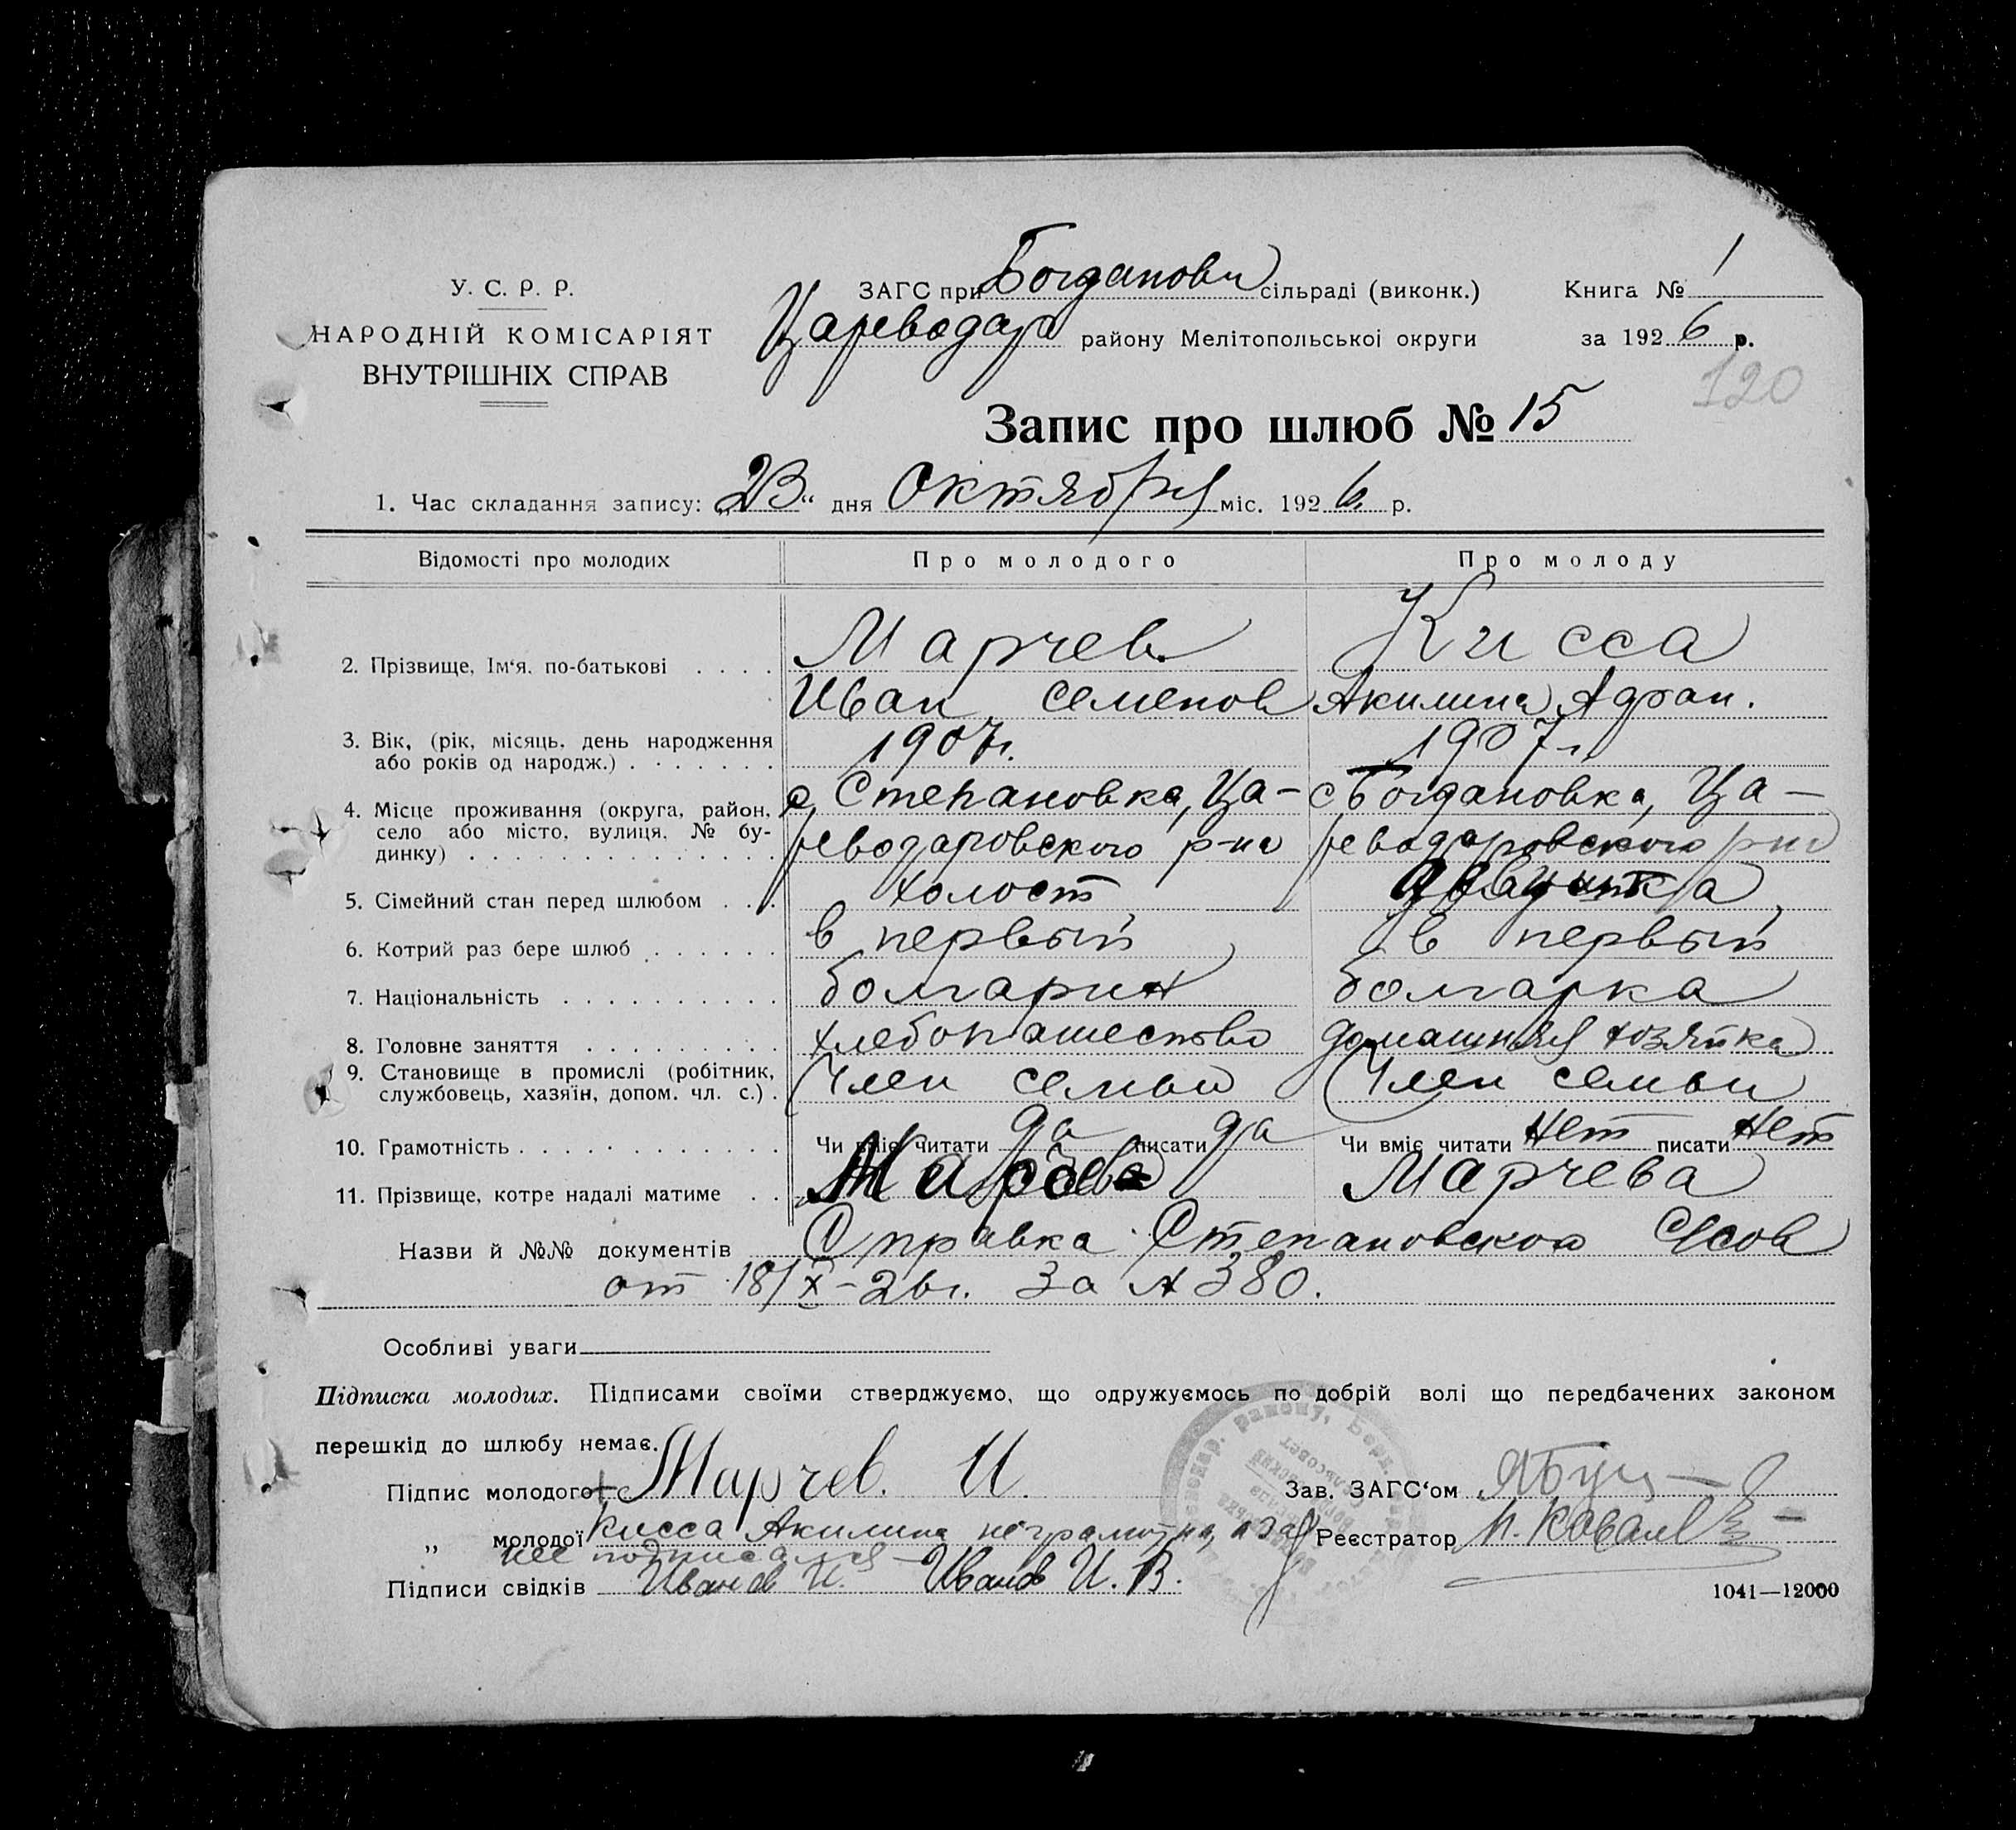 У. С. Р. Р.
НАРОДНІЙ КОМІСАРІЯТ
ВНУТРІШНІХ СПРАВ
ЗАГС при Богданови сільраді (виконк.)
Цареводар району Мелітопольської округи
Книга № 1
за 1926 р.
120
Запис про шлюб № 15
1. Час складання запису: „23“ дня Октября міс. 1926 р.
Відомості про молодих Про молодого Про молоду
2. Прізвище, Ім‘я, по-батькові . . . . Марчев Кисса
Иван Семенов Акилина Адрап.
3. Вік, (рік, місяць, день народження 1907г. 1907г.
або років од народж.) . . . . . . .
4. Місце проживання (округа, район, с Степановка, Ца- с Богдановка, Ца-
село або місто, вулиця, № бу- реводаровского р-на реводаровского р-на
динку) . . . . . . . . . . . . . .
5. Сімейний стан перед шлюбом . . . холост, девушка,
6. Котрий раз бере шлюб . . . . . . в первый в первый
7. Національність . . . . . . . . . . болгарин болгарка
8. Головне заняття . . . . . . . . . хлебопашество домашняя хозяйка
9. Становище в промислі (робітник, Член семьи Член семьи
службовець, хазяїн, допом. чл. с.) .
10. Грамотність . . . . . . . . . . . . Чи вміє читати да писати да Чи вміє читати Нет писати Нет
11. Прізвище, котре надалі матиме . . Марчев Марчева
Назви й №№ документів Справка Степановской С/сов
от 18/X-26г. за № 380.
Особливі уваги
Підписка молодих. Підписами своїми стверджуємо, що одружуємось по добрій волі що передбачених законом
перешкід до шлюбу немає.
Підпис молодого Марчев. И. Зав. ЗАГС‘ом
„ молодої Кисса Акилина неграмотна, а за Реєстратор И. Ковалев
нее подписался
Підписи свідків Иванов И. Иванов И. В.
1041—12000